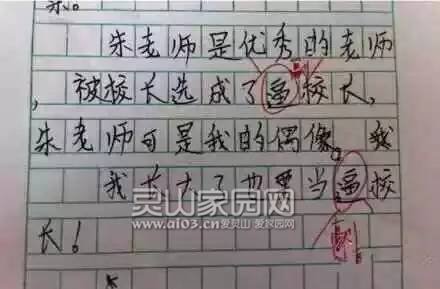 朱老师是优秀的老师
，被校长选成了逼校长，
副
朱老师可是我的偶像。我
我长大了也要当逼校
长！
副
灵山家园网
www.ai03.cn 爱灵山 爱家园网